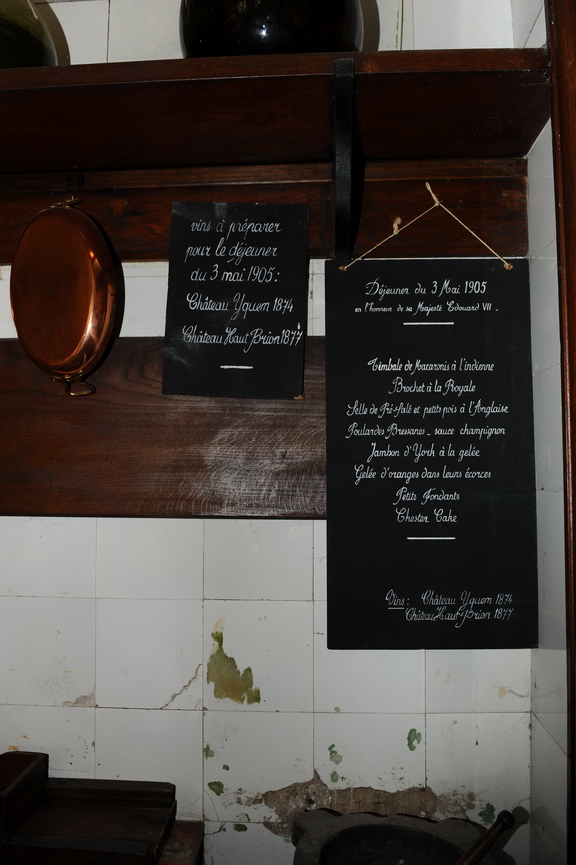 vins à préparer
pour le déjeuner
du 3 mai 1905:
Château Yquem 1874
Château Haut Brion 1877
Déjeuner du 3 Mai 1905
en l'honneur de sa Majesté Edouard VII.
Timbale de Macaronis à l'indienne
Brochet à la Royale
Selle de Pré-Salé et petits pois à l'Anglaise
Poulardes Bressanes_ sauce champignon
Jambon d'York à la gelée
Gelée d'oranges dans leurs écorces
Petits Fondants
Chester Cake
Vins: Château Yquem 1874
Château Haut-Brion 1877